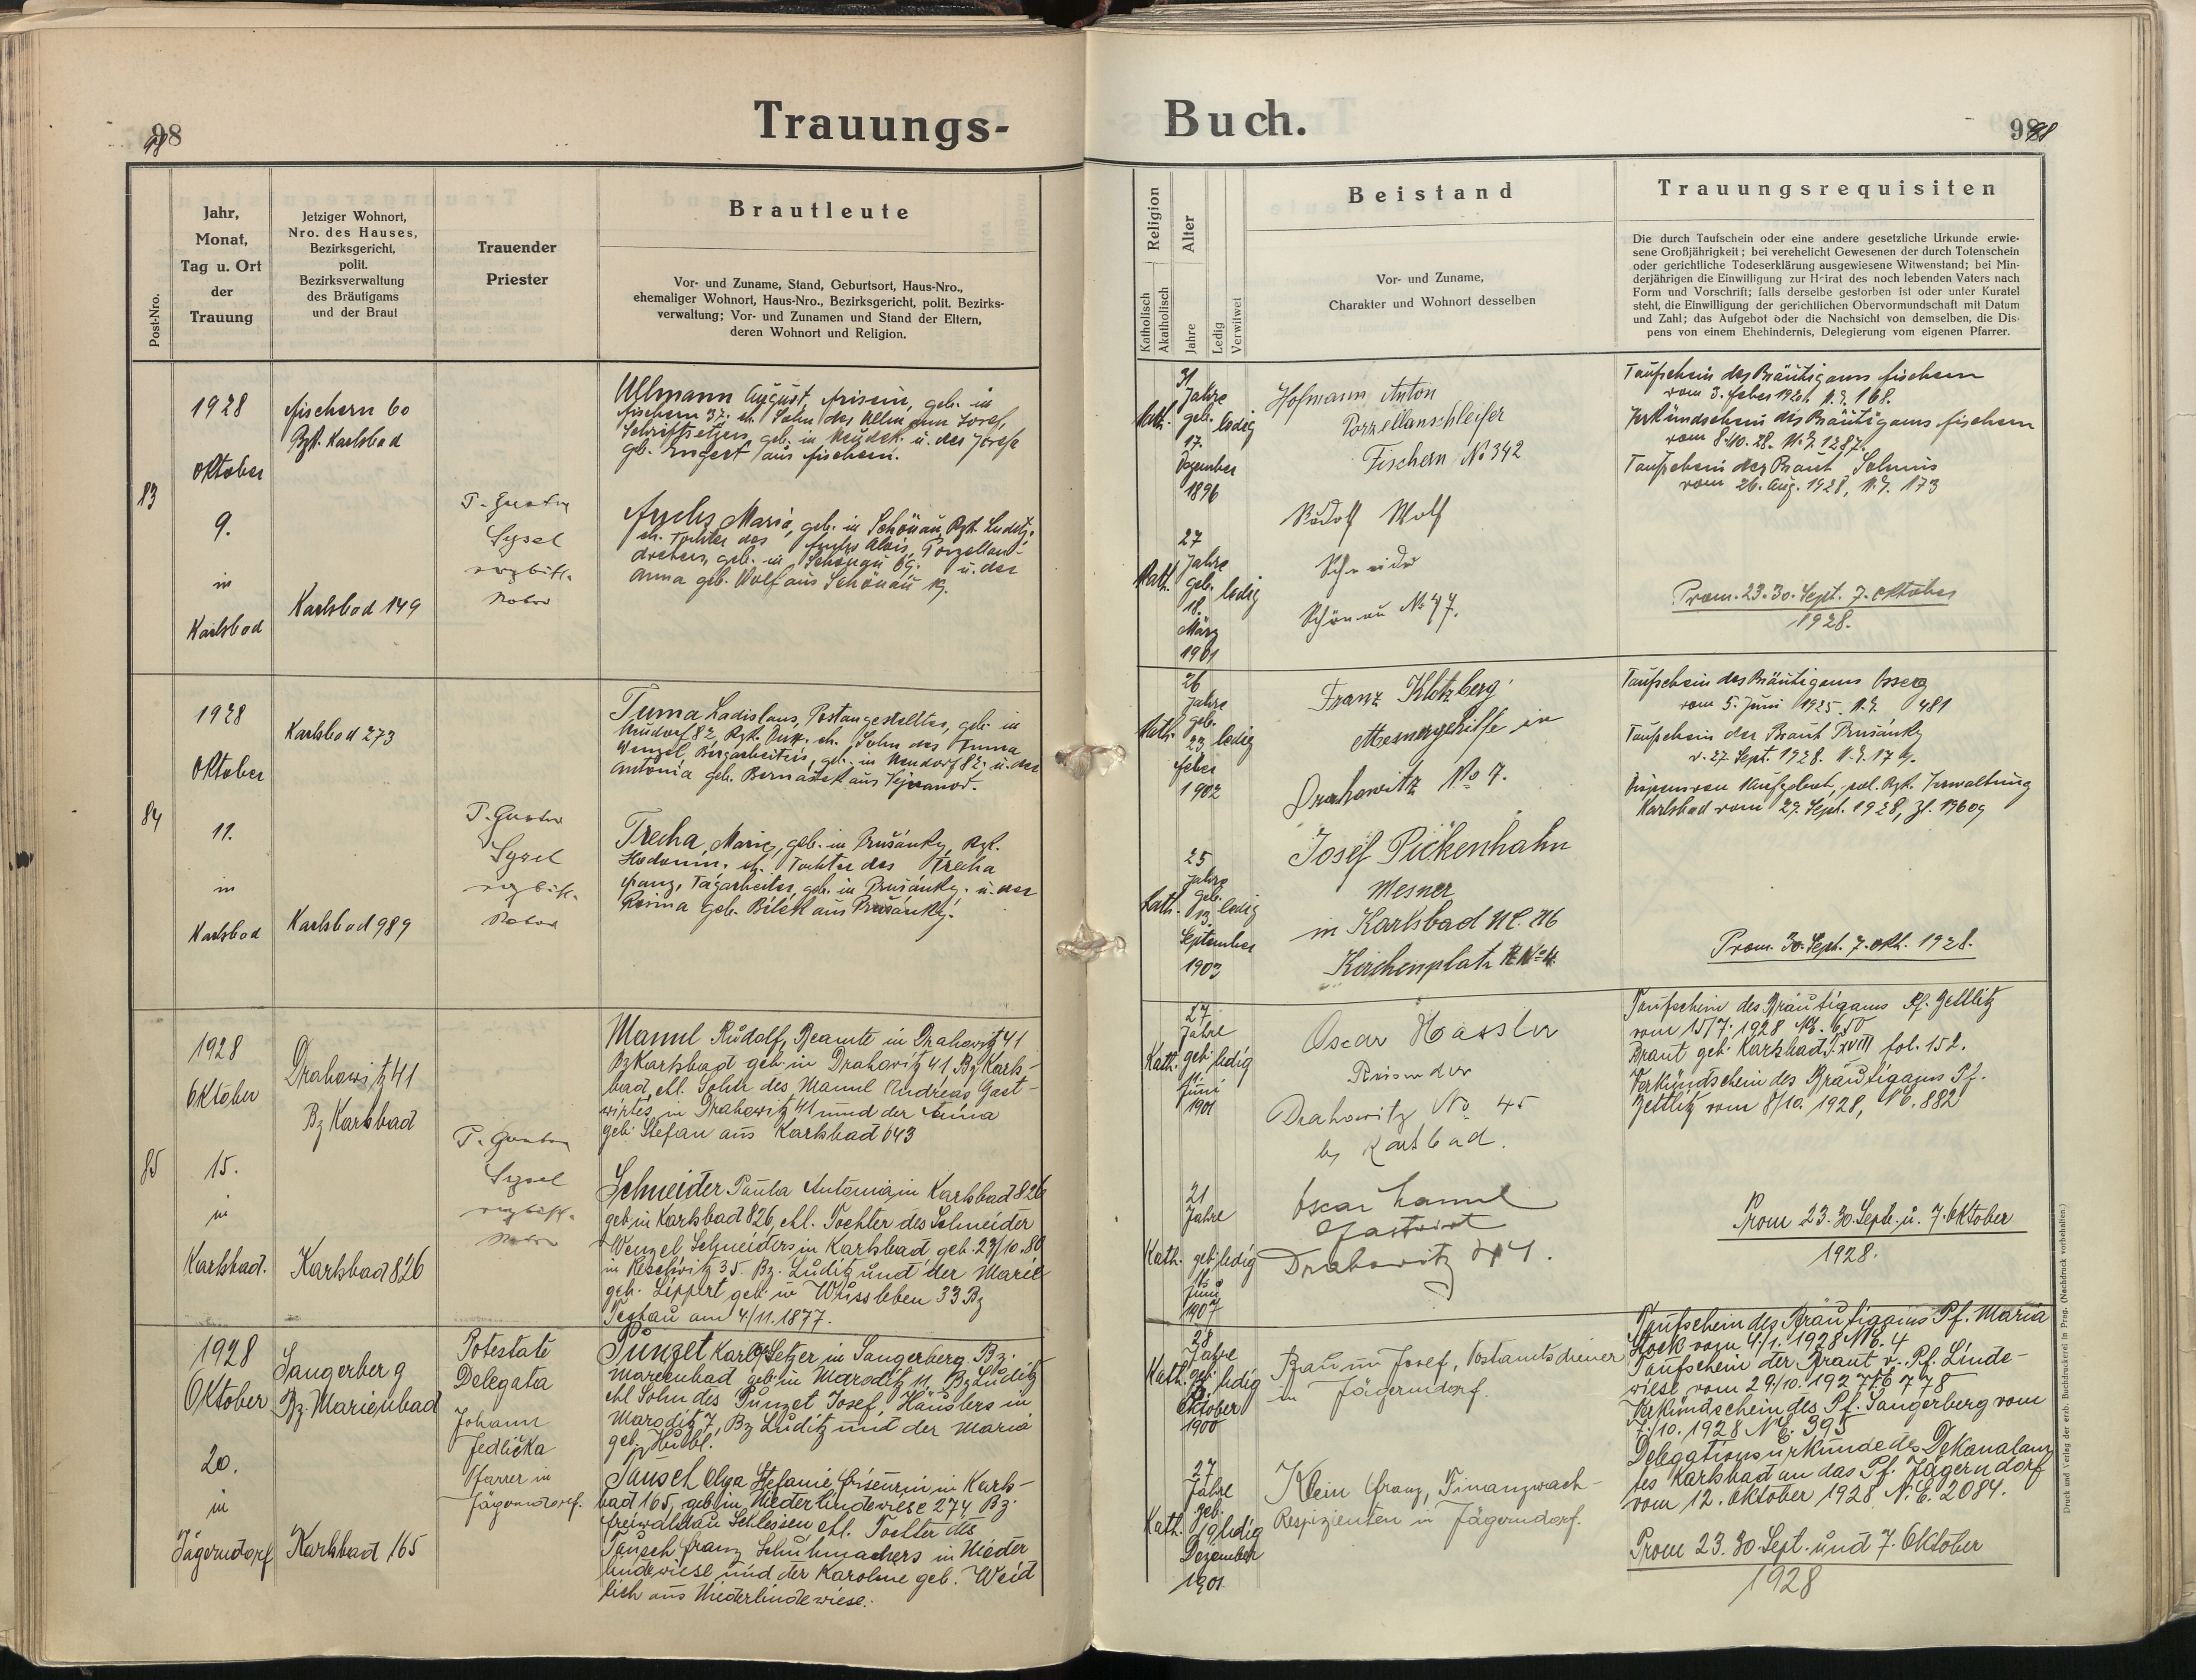 98
Trauungs-
Post-Nro.
Jahr,
Monat,
Tag u. Ort
der
Trauung
Jetziger Wohnort,
Nro. des Hauses,
Bezirksgericht,
polit.
Bezirksverwaltung
des Bräutigams
und der Braut
Trauender
Priester
Brautleute
Vor- und Zuname, Stand, Geburtsort, Haus-Nro.,
ehemaliger Wohnort, Haus-Nro., Bezirksgericht, polit. Bezirks-
verwaltung; Vor- und Zunamen und Stand der Eltern,
deren Wohnort und Religion.
83
1928
Oktober
9.
in
Karlsbad
Fischern 60
Bzk. Karlsbad
Karlsbad 149
P. Gustav
Sysel
erzbisch.
Ullmann August, Friseur, geb. in
Fischern 37. eh. Sohn des Ullmann Josef,
Schriftsetzers, geb. in Neudek u. der Josefa
geb. aus Fischern.
Fuchs Maria, geb. in Schönau, Bzk. Luditz.
eh. Tochter des Fuchs Alois, Porzellan-
drehers, geb. in Schönau 69. u. der
Anna geb. Wolf aus Schönau 19.
84
1928
Oktober
11.
in
Karlsbad
Karlsbad 273
Karlsbad 989
P. Gustav
Sysel
erzbisch.
Tuma Ladislaus, Postangestellter, geb. in
Neudorf 82, Bzk. Dux. eh. Sohn des Tuma
Wenzel, Bergarbeiters, geb. in Neudorf 82. u. der
Antonia geb. Bernášek aus
Trecha, Marie, geb. in Prušánky, Bzk.
Hodonín. eh. Tochter des Trecha
Franz, Tagarbeiter, geb. in Prušánky. u. der
Rosina geb. Bílek aus Prušánky.
85
1928
Oktober
15.
in
Karlsbad.
Drahowitz 41
Bz Karlsbad
Karlsbad 826
P. Gustav
Sysel
erzbisch.
Manul Rudolf, Beamte in Drahowitz 41
Bz Karlsbad geb in Drahowitz 41 Bz Karls-
bad, ehl. Sohn des Manul Andreas Gast-
wirtes in Drahowitz 41 und der Anna
geb. Stefan aus Karlsbad 643
Schneider Paula Antonia in Karlsbad 826
geb in Karlsbad 826, ehl. Tochter des Schneider
Wenzel Schneiders in Karlsbad geb. 27/10.80
in 35. Bz. Luditz und der Marie
geb. Lippert geb in Wussleben 33 Bz
am 4/11.1877.
1928
Oktober
20.
in
Jägerndorf
Sangerberg
Bz. Marienbad
Karlsbad 165
Potestate
Delegata
Johann
Jedlička
Pfarrer in
Jägerndorf.
Punzet Karl, Setzer in Sangerberg. Bz.
Marienbad geb in Maroditz 11, Bz Luditz
ehl Sohn des Punzet Josef, Häuslers in
Maroditz 7, Bz Luditz und der Maria
geb.
Tausch Olga Stefanie Friseurin in Karls-
bad 165, geb in Niederlindewiese 274 Bz.
Freiwaldau Schlesien ehl. Tochter des
Tausch Franz Schuhmachers in Nieder
lindewiese und der Karoline geb. Weid
lich aus Niederlindewiese.
Buch.
98
Religion
Katholisch
Akatholisch
Alter
Jahre
Ledig
Verwitwet
Beistand
Vor- und Zuname,
Charakter und Wohnort desselben
Trauungsrequisiten
Die durch Taufschein oder eine andere gesetzliche Urkunde erwie-
sene Großjährigkeit; bei verehelicht Gewesenen der durch Totenschein
oder gerichtliche Todeserklärung ausgewiesene Witwenstand; bei Min-
derjährigen die Einwilligung zur Heirat des noch lebenden Vaters nach
Form und Vorschrift; falls derselbe gestorben ist oder unter Kuratel
steht, die Einwilligung der gerichtlichen Obervormundschaft mit Datum
und Zahl; das Aufgebot oder die Nachsicht von demselben, die Dis-
pens von einem Ehehindernis, Delegierung vom eigenen Pfarrer.
31
Jahre
Kath. geb. ledig
17.
Dezember
1896
27
Jahre
Kath. geb. ledig
18.
März
1901
Hofmann Anton
Porzellanschleifer
Fischern No 342
Rudolf Wolf
Schneider
Schönau No 47.
Taufschein des Bräutigams Fischern
vom 3. Feber 1928. N. E. 168.
Verkündschein des Bräutigams Fischern
vom 8.10.28. N. E. 1287.
Taufschein der Braut
vom 26. Aug. 1928, N. E. 173
Prom. 23. 30. Sept. 7. Oktober
1928.
26
Jahre
geb.
Kath. 23 ledig
Feber
1902
25
Jahre
geb.
Kath. 13. ledig
September
1903
Franz Klotzberg
Mesnergehilfe in
Drahowitz No 7.
Josef Pickenhahn
Mesner
in Karlsbad
Kirchenplatz
Taufschein des Bräutigams Ossegg
vom 5. Juni 1925. N. E. 481
Taufschein der Braut Prušánky
v. 27. Sept. 1928. N. E. 179.
Dispens vom Aufgebot, pol. Bzk. Verwaltung
Karlsbad vom 29. Sept. 1928, Zl. 19609
Prom. 30. Sept. 7. Okt. 1928.
27
Jahre
Kath. geb. ledig
11.
Juni
1901
21
Jahre
Kath. geb ledig
Juni
1907
Oscar Hassler
Reisender
Drahowitz No 45
b. Karlsbad.
Oscar
Gastwirt
Drahowitz
Taufschein des Bräutigams Pf. Zettlitz
vom 15/7. 1928 NE. 650
Braut geb. Karlsbad T. XVIII fol. 152.
Verkündschein des Bräutigams Pf.
Zettlitz vom 8/10. 1928, NE. 882
Prom 23. 30. Septb. u. 7. Oktober
1928.
28
Jahre
Kath. geb ledig
Oktober
1900
27
Jahre
geb.
Kath. 19 ledig
Dezember
1901
Braun Josef, Postamtsdiener
in Jägerndorf.
Klein Franz, Finanzwach-
Respizienten in Jägerndorf.
Taufschein des Bräutigams Pf. Maria
Stock vom 4/1. 1928 NE. 4
Taufschein der Braut v. Pf. Linde-
wiese vom 29/10. 1927 NE 778
Verkündschein des Pf. Sangerberg vom
7./10. 1928 NE. 395
Delegationsurkunde des Dekanalam
tes Karlsbad an das Pf. Jägerndorf
vom 12. Oktober 1928 N. E. 2084.
Prom 23. 30. Sept. und 7. Oktober
1928
Druck und Verlag der erzb. Buchdruckerei in Prag. (Nachdruck vorbehalten.)